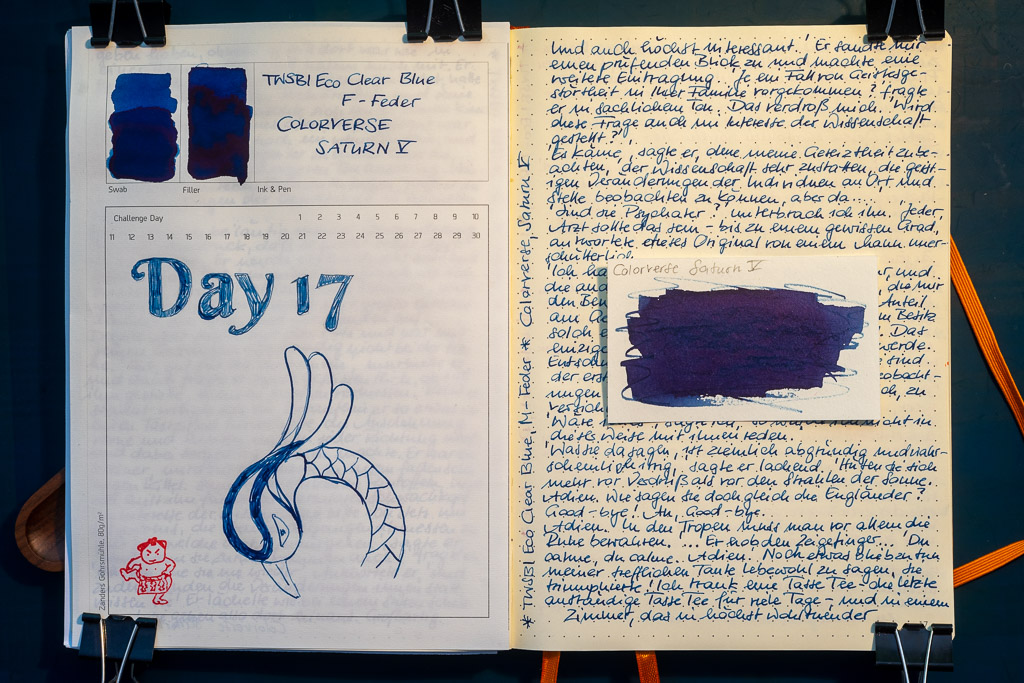 TWSBI Eco Clear Blue
F-Feder
COLORVERSE
SATURN V
Swab
Filler
Ink & Pen
Challenge Day
1 2 3 4 5 6 7 8 9 10
11 12 13 14 15 16 17 18 19 20 21 22 23 24 25 26 27 28 29 30
Day 17
Zanders Gohrsmühle, 80g/m²
* TWSBI Eco Clear Blue, M-Feder * Colorverse, Saturn V
Und auch höchst interessant.' Er sandte mir
einen prüfenden Blick zu und machte eine
weitere Eintragung. 'Je ein Fall von Geistesge-
störtheit in Ihrer Familie vorgekommen?' fragte
er in sachlichem Ton. Das verdroß mich. 'Wird
diese Frage auch im Interesse der Wissenschaft
gestellt?'
'Es käme', sagte er, ohne meine Gereiztheit zube-
achten, 'der Wissenschaft sehr zustatten, die geisti-
gen Veränderungen der Individuen an Ort und
Stelle beobachten zu können, aber da...'
'Sind sie Psychiater?' unterbrach ich ihn. 'Jeder
Arzt sollte das sein - bis zu einem gewissen Grad,'
antwortete dieses Original von einem Mann uner-
schütterlich.
'Ich ha
Colorverse Saturn V
und
die and
die mir
den Ben
Anteil
am
Besitz
solch
Das
einzig
werde.
Entsch
sind
der erst
eobacht-
ungen
ch, zu
versich
'Wäre
nicht in
dieser Weise mit ihnen reden.'
'Was sie da sagen, ist ziemlich abgründig und wahr-
scheinlich irrig', sagte er lachend. 'Hüten sie sich
mehr vor Verdruß als vor den Strahlen der Sonne.
Adieu. Wie sagen sie doch gleich die Engländer?
Good-bye! Ah, Good-bye.
Adieu. In den Tropen muss man vor allem die
Ruhe bewahren.' ... Er hob den Zeigefinger... 'Du
calme, du calme. Adieu.' Noch etwas blieb zu tun
meiner trefflichen Tante Lebewohl zu sagen, sie
triumphierte. Ich trank eine Tasse Tee - die letzte
anständige Tasse Tee für viele Tage - und in einem
Zimmer, das in höchst wohltuender